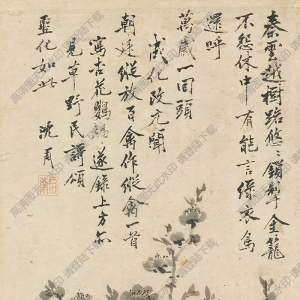 秦雲越樹路悠悠鎖斷金籠
不怨休中有能言綠衣鳥
還呼
萬歲一回頭
成化改元聞
朝廷縱放百禽作縱禽一首
寫杏花鸚鵡遂錄上方亦
見草野民謳頌
聖化如此 沈周